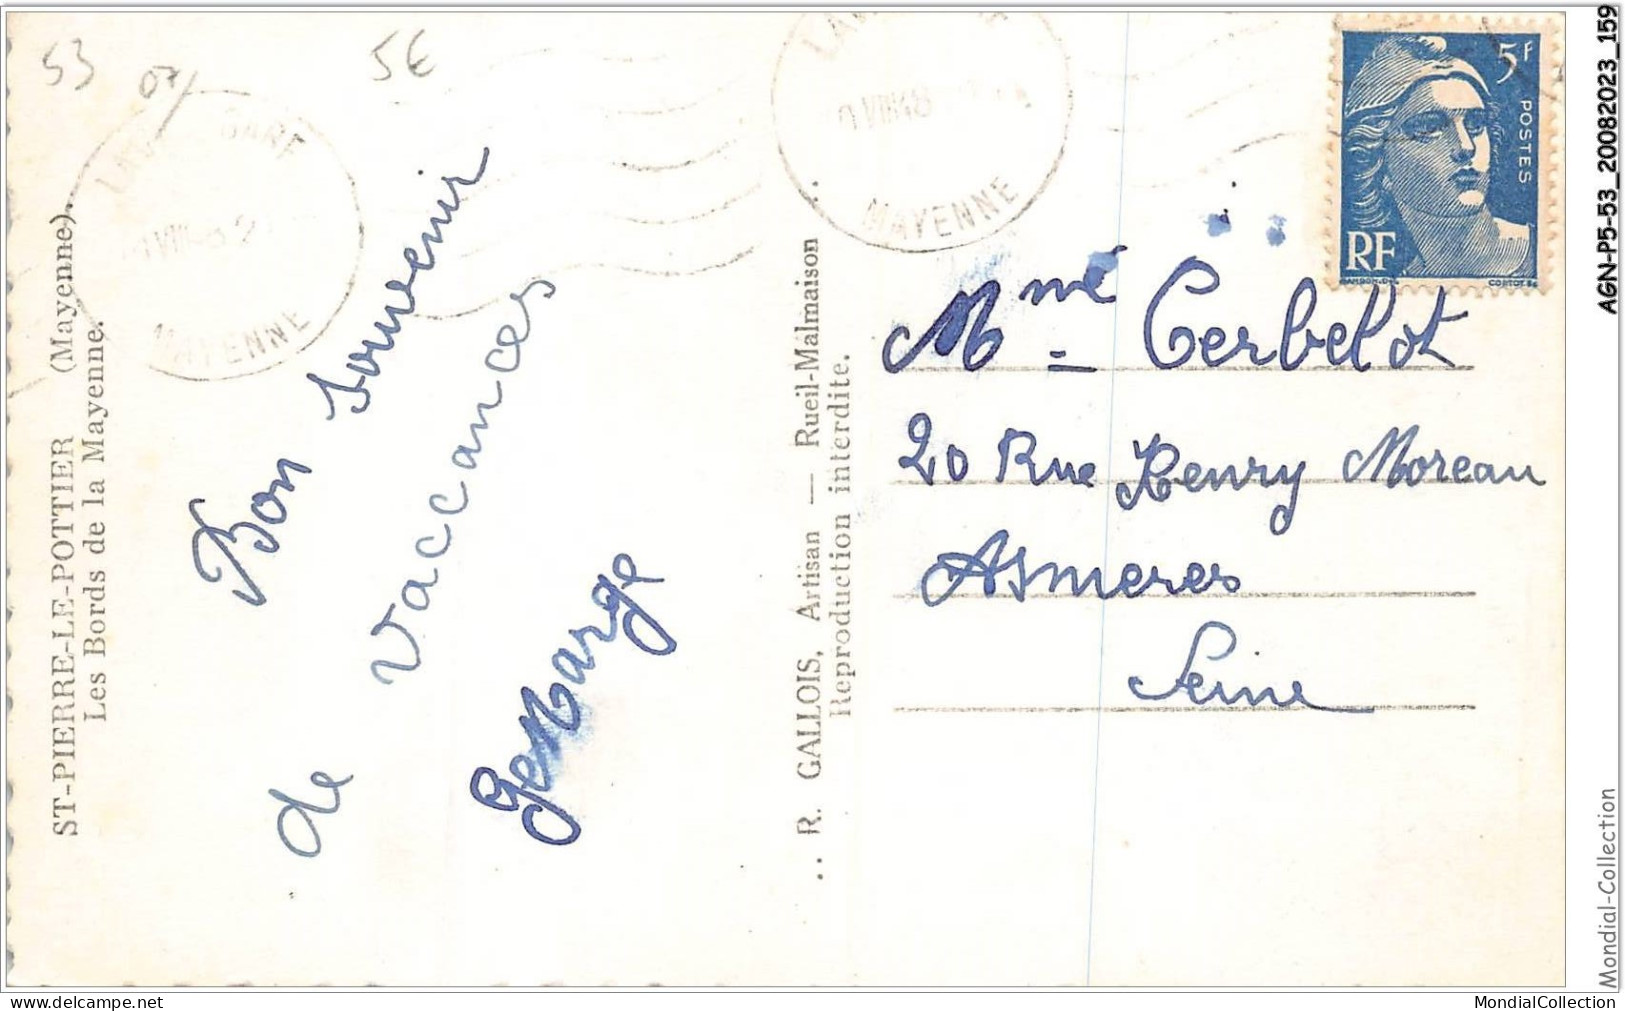 53
5€
ST-PIERRE-LE-POTTIER (Mayenne).
Les Bords de la Mayenne.
GARE
MAYENNE
Bon souvenir
de vaccances
GeMarge
... R. GALLOIS, Artisan — Rueil-Malmaison ..
Reproduction interdite.
VIII48
MAYENNE
5F
POSTES
RF
Mme Cerbelot
20 Rue Henry Moreau
Asmeres
Seine
AGN-P5-53_20082023_159
Mondial-Collection
www.delcampe.net
MondialCollection